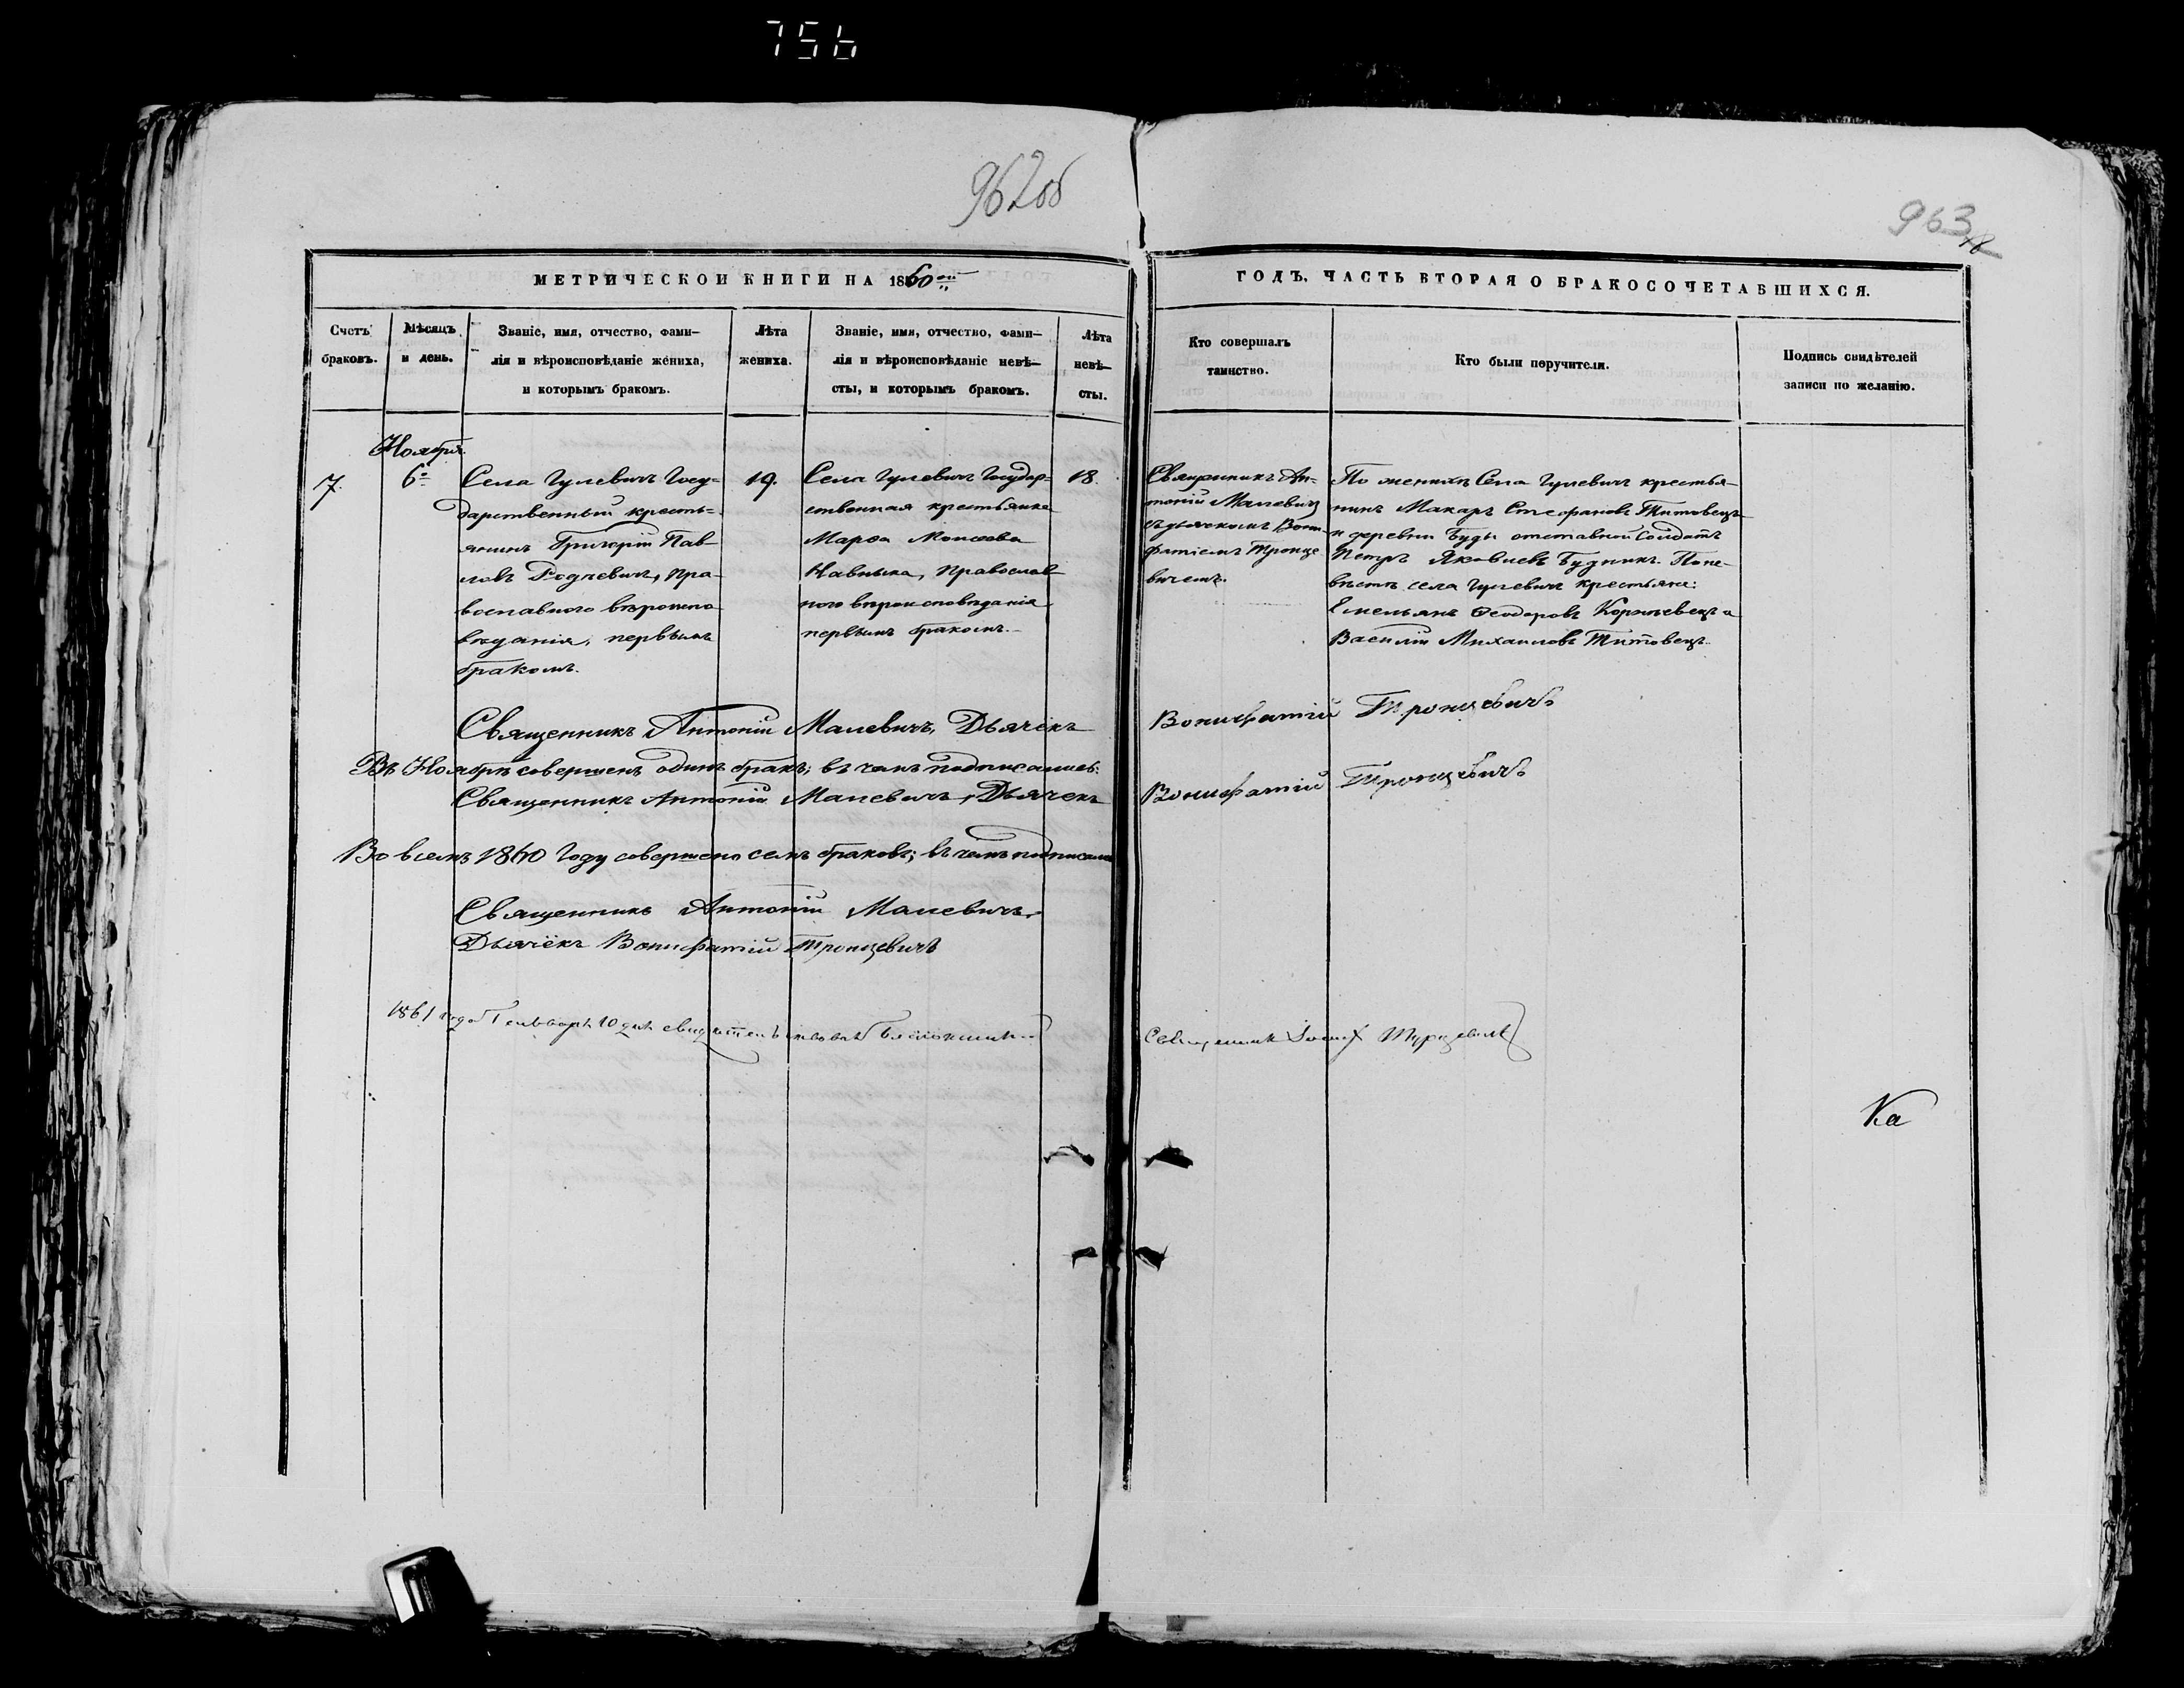 756
962об
963
МЕТРИЧЕСКОЙ КНИГИ НА 1860ой
ГОДЪ, ЧАСТЬ ВТОРАЯ О БРАКОСОЧЕТАВШИХСЯ.
Счетъ браковъ.
Мѣсяцъ и день.
Званіе, имя, отчество, фами-
лія и вѣроисповѣданіе жениха,
и которымъ бракомъ.
Лѣта жениха.
Званіе, имя, отчество, фами-
лія и вѣроисповѣданіе невѣ-
сты, и которымъ бракомъ.
Лѣта невѣ-
сты.
Кто совершалъ
таинство.
Кто были поручители.
Подпись свидѣтелей
записи по желанію.
Ноября
7.
6го
Села Гулевичъ Госу-
дарственный кресть-
янинъ Григорій Пав-
ловъ Родневичъ, Пра-
вославного вѣроиспо
вѣданія, первымъ
бракомъ.
19.
Села Гулевичъ Государ-
ственная крестьянка
Марѳа Моисеева
Навныка, Православ
ного вѣроисповѣданія
первымъ бракомъ.
18.
Священикъ Ан-
тоній Малевичъ
съ дьячкомъ Вони-
фатіемъ Тронце
вичемъ.
По женихѣ Села Гулевичъ крестья-
нинъ Макаръ Стефановъ Титовецъ
и деревни Буды отставной Солдатъ
Петръ Яковлевъ Будникъ. По не-
вѣстѣ села Гулевичъ крестьяне:
Емельянъ Ѳеодоровъ Корнѣевецъ и
Василій Михаиловъ Титовецъ
Священникъ Антоній Малевичъ, Дьячекъ Вонифатій Тронцевичъ
Въ Ноябрѣ совершенъ одинъ бракъ; въ чемъ подписались:
Священникъ Антоній Малевичъ, Дьячекъ Вонифатій Тронцевичъ
Во всемъ 1860 Году совершено семь браковъ; въ чемъ подписались
Священникъ Антоній Малевичъ,
Дьячёкъ Вонифатій Тронцевичъ
1861 года Генваря 10 дня свидѣтельствовалъ Благочинн. Священникъ Іосифъ
Ка